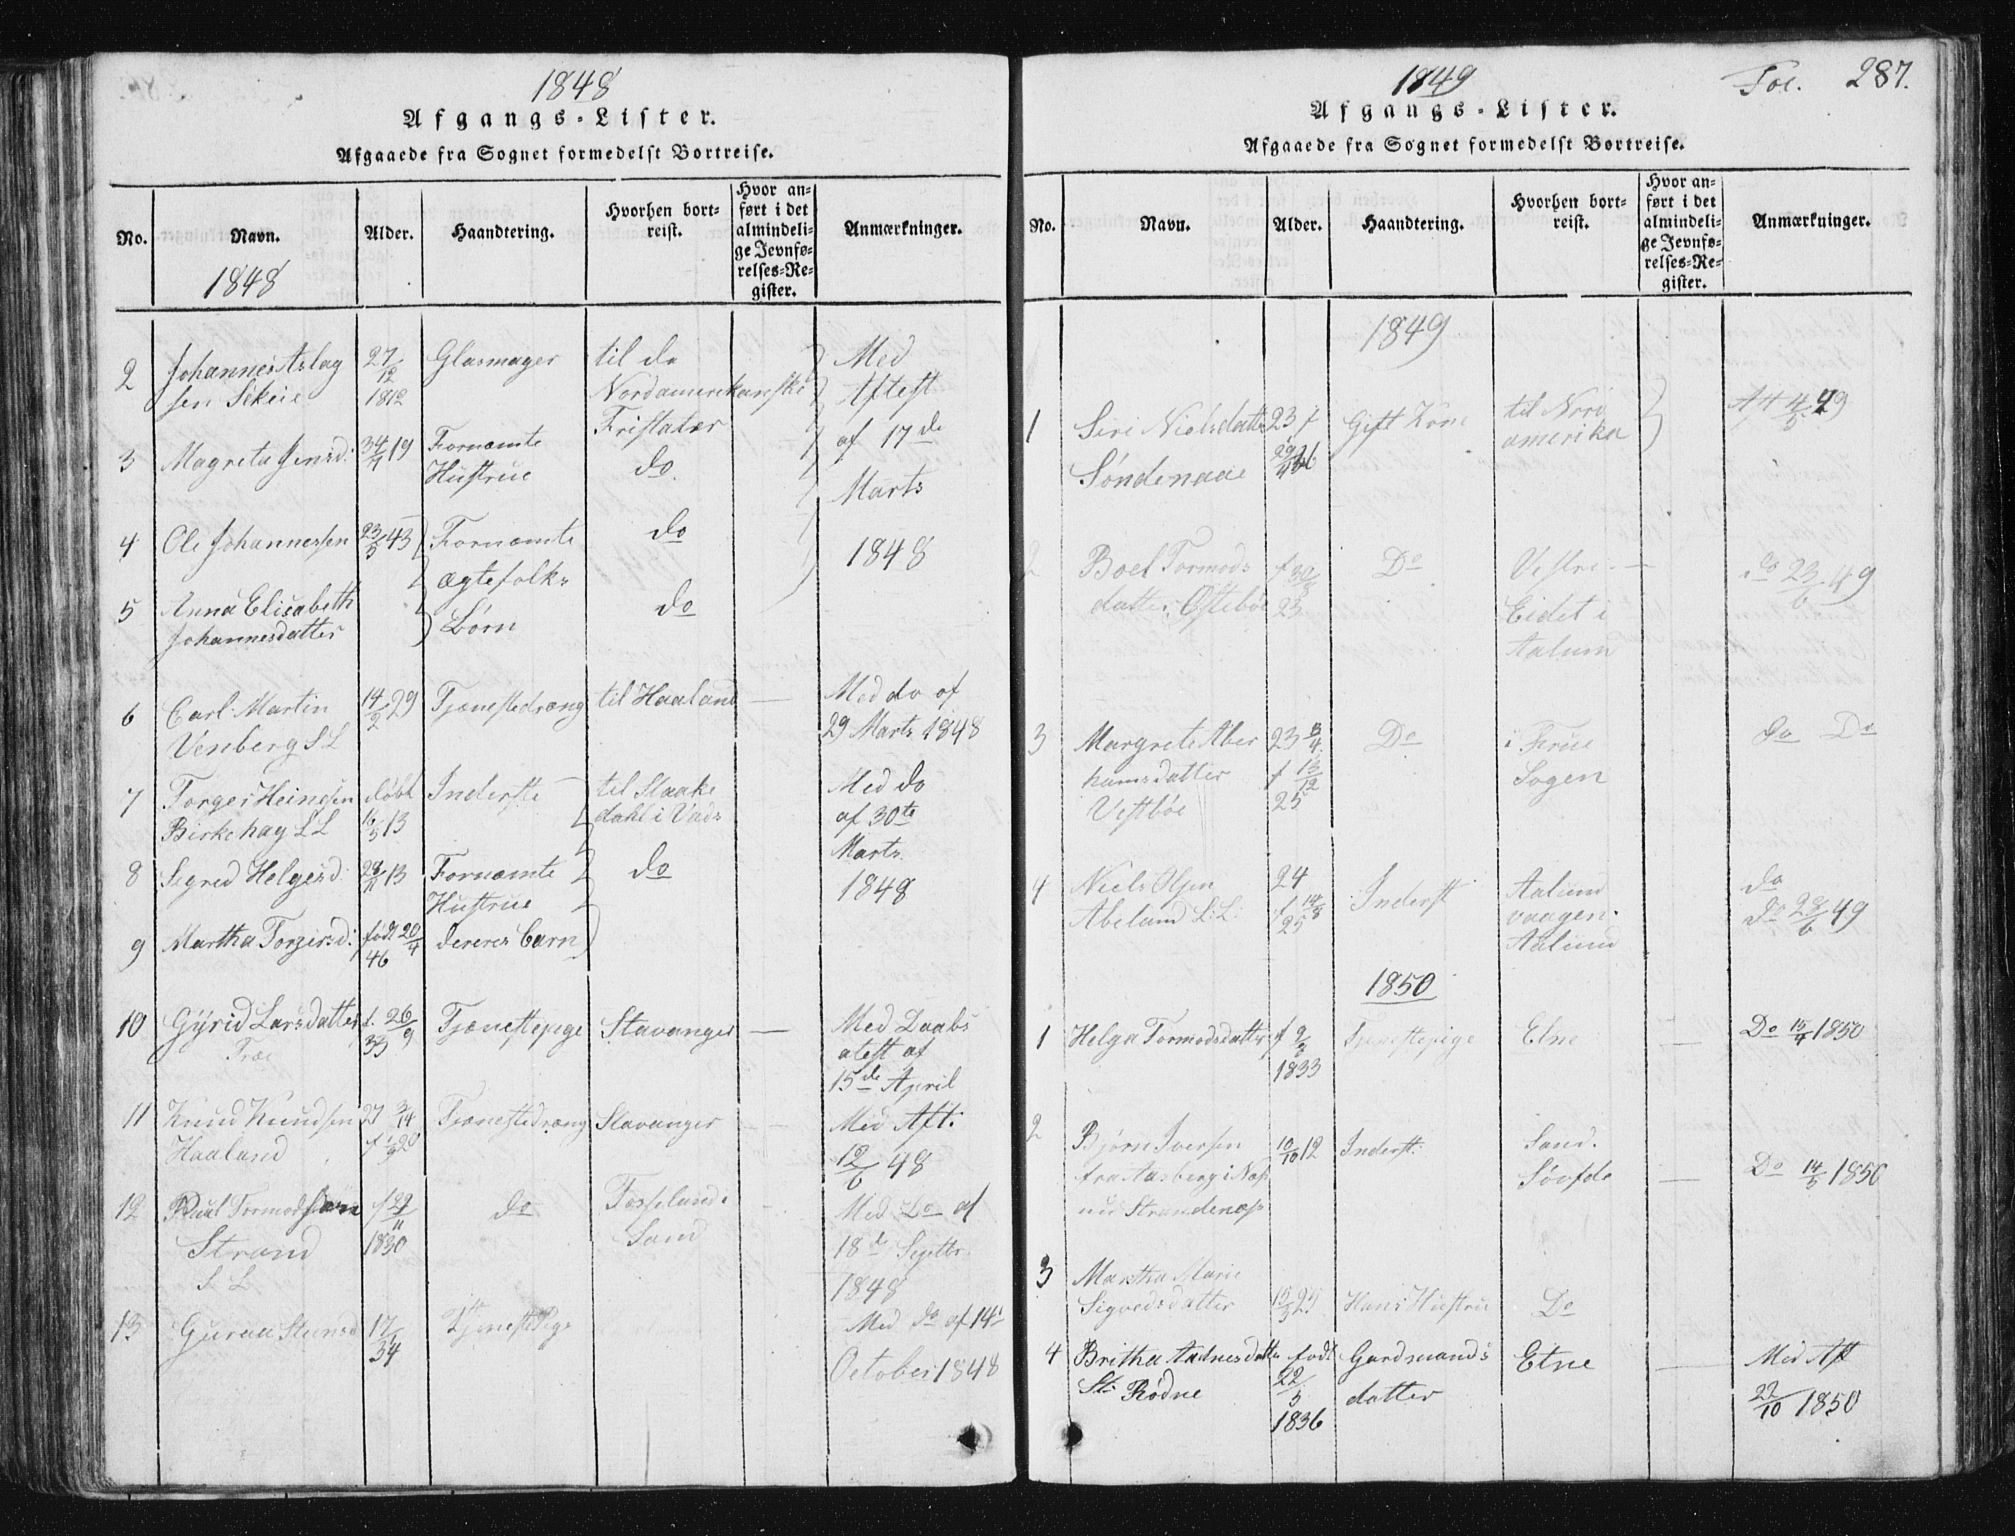 1848
Afgangs-Lister.
Afgaaede fra Sognet formedelst Bortreise.
No. Navn. Alder. Haandtering. Hvorhen bortreist. Hvor anført i det almindelige Jevnførelses-Register. Anmærkninger.
1848
2 Johannes Aslag 27/12 Glasmager til do Med
sen Skeie 1812 Nordamerikanske Attest
Fristater af 17de
3 Magreta Jensd: 19 Fornæmte do Marts
Hustrue
4 Ole Johannessen 23/5 43 Fornæmte do 1848
ægtefolks
5 Anna Elisabeth Børn do
Johannesdatter
6 Carl Martin 14/2 29 Tjenestedræng til Haaland — Med do af
Venberg S L 29 Marts 1848
7 Torger Heinesen døbt Inderste til Skaake Med do
Birkehag S L 16/5 13 dahl i Vads af 30te
Marts
8 Sigred Helgesd: 13 Fornæmte do 1848
Hustrue
9 Martha Torgersd: født 20/4 deres Barn
46
10 Gÿrid Larsdatter f. 26/9 Tjenestepige Stavanger — Med Daabs
Træe 33 atest af
15de April
11 Knud Knudsen 27 3/4 Tjenestedræng Stavanger — Med Att.
Haaland 20 12/6 48
12 Paul Tormodsen f 29/11 do Med Do af
Strand 1830 Sand 18de Septbr
S L 1848
13 17/ Tjenestepige Med do af 14de
34 October 1848
1849
Fol. 287.
Afgangs-Lister.
Afgaaede fra Sognet formedelst Bortreise.
No. Navn. Alder. Haandtering. Hvorhen bortreist. Hvor anført i det almindelige Jevnførelses-Register. Anmærkninger.
1849
1 Siri Nielsdatter 23 f Gift Kone til Nord Att 4/5 49
Søndenaae amerika
2 Boel Tormods f 30/ Do Vestre — do 23/6 49
datter Østebøe 23 Eidet i
Aalund
3 Margrete Abra 23 3/4 Do i Frue do Do
hamsdatter f 13/12 Sogen
Vestbøe 25
4 Niels Olsen 24 Inderst Aalund do
Abeland S:L: f 14/8 vaagen. do 28/6 49
25 Aalund
1850
1 Helga Tormodsdatter f 9/3 Tjenestepige Etne — Do 15/4 1850
1833
2 Bjørn Iversen 10/10 12 Inderst: Sand.
fra Aasberg i Næs Søvde — Do 14/5 1850
nu Strandenæs
3 Martha Marie
Sigvedsdatter 15/3 25 Hans Hustru Do
4 Britha Aadnesdatter født Gardmands Etne — Med Att
St: Rødne 22/5 datter 22/10 1850
1836